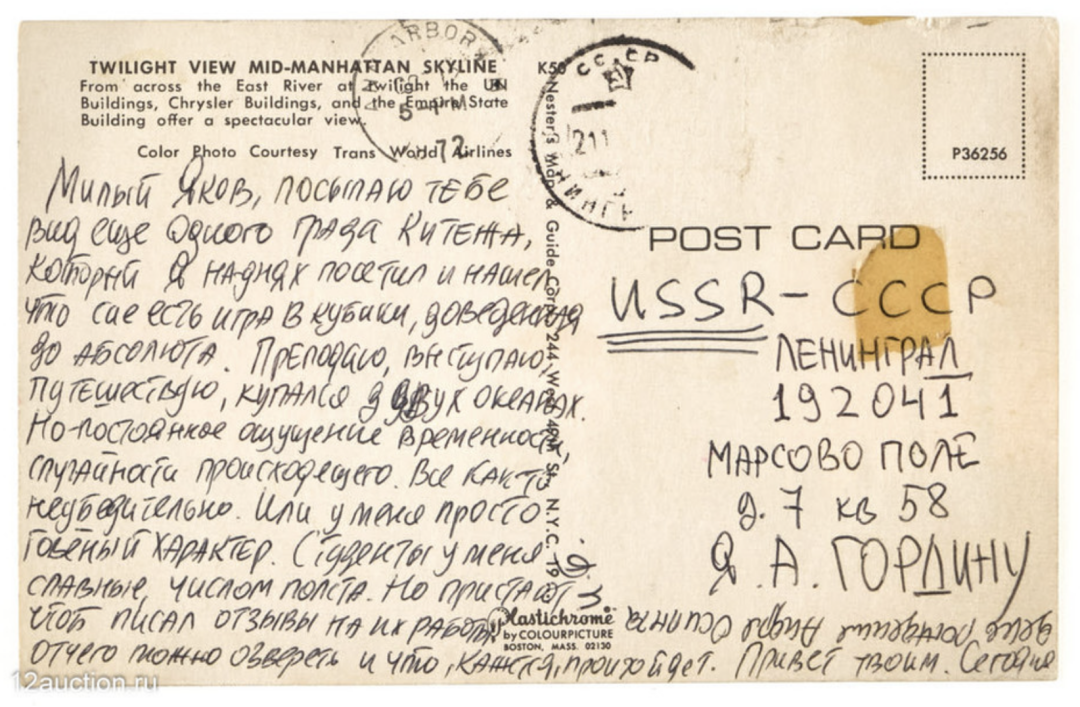 TWILIGHT VIEW MID-MANHATTAN SKYLINE
From across the East River at twilight the UN
Buildings, Chrysler Buildings, and the Empire State
Building offer a spectacular view.
Color Photo Courtesy Trans World Airlines
Милый Яков, посылаю тебе
вид еще одного града Китежа,
который я на днях посетил и нашел,
что сие есть игра в кубики, доведенная
до абсолюта. Преподаю, выступаю,
путешествую, купался в двух океанах.
Но постоянное ощущение временности,
случайности происходящего. Все как-то
неубедительно. Или у меня просто
говеный характер. Студенты у меня
славные, числом полста. Но пристают
чтоб писал отзывы на их работы,
отчего можно озвереть и что, кажется, произойдет. Привет твоим. Сегодня
день рождения Андрея Осипыча
K50
Nester's Map & Guide Corp. 244 West 49th St. N.Y.C. 19
ARBOR
5 PM
72
СССР
211
P36256
POST CARD
USSR - СССР
ЛЕНИНГРАД
192041
МАРСОВО ПОЛЕ
д. 7 кв 58
Я. А. ГОРДИНУ
Plastichrome
by COLOURPICTURE
BOSTON, MASS. 02130
12auction.ru